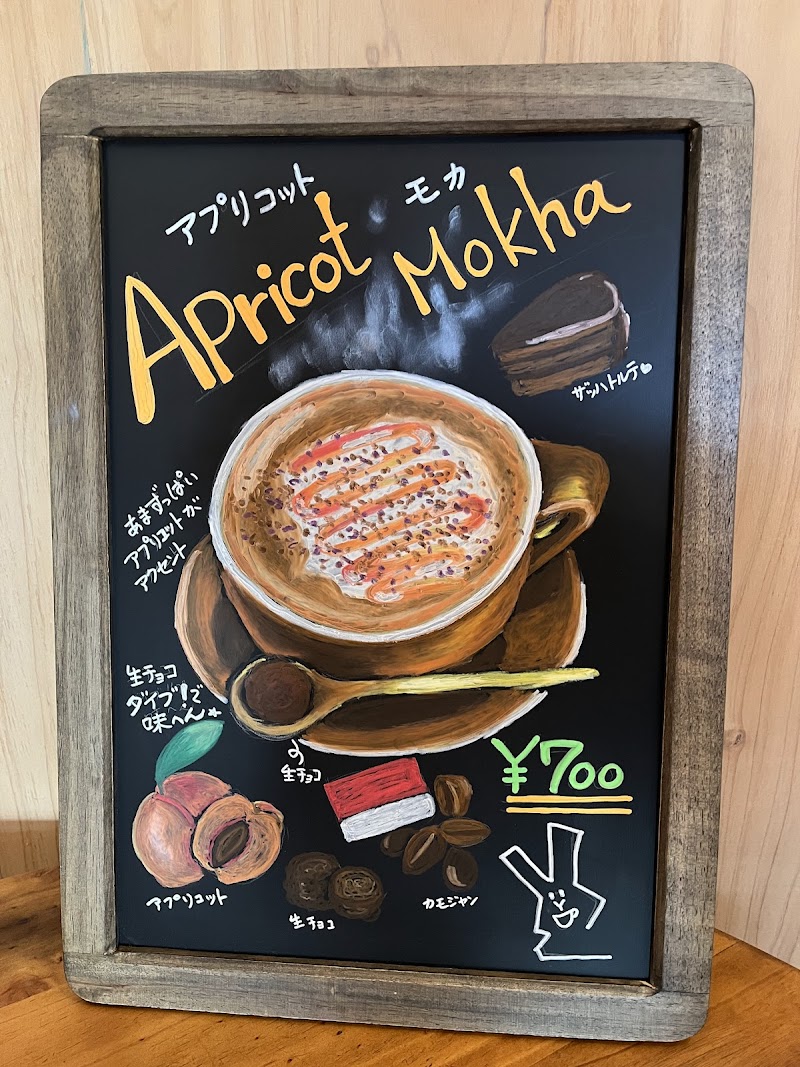 アプリコット モカ
Apricot Mokha
ザッハトルテ♡
あまずっぱい
アプリコットが
アクセント
生チョコ
ダイブ!で
味へん
生チョコ
¥700
アプリコット
生チョコ
カモジャン